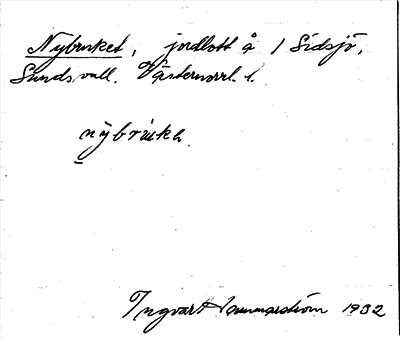 Nybruket, jordlott å 1 Sidsjö,
Sundsvall. Västernorrl. l.
nybrukə
Yngvar Hammarström 1932